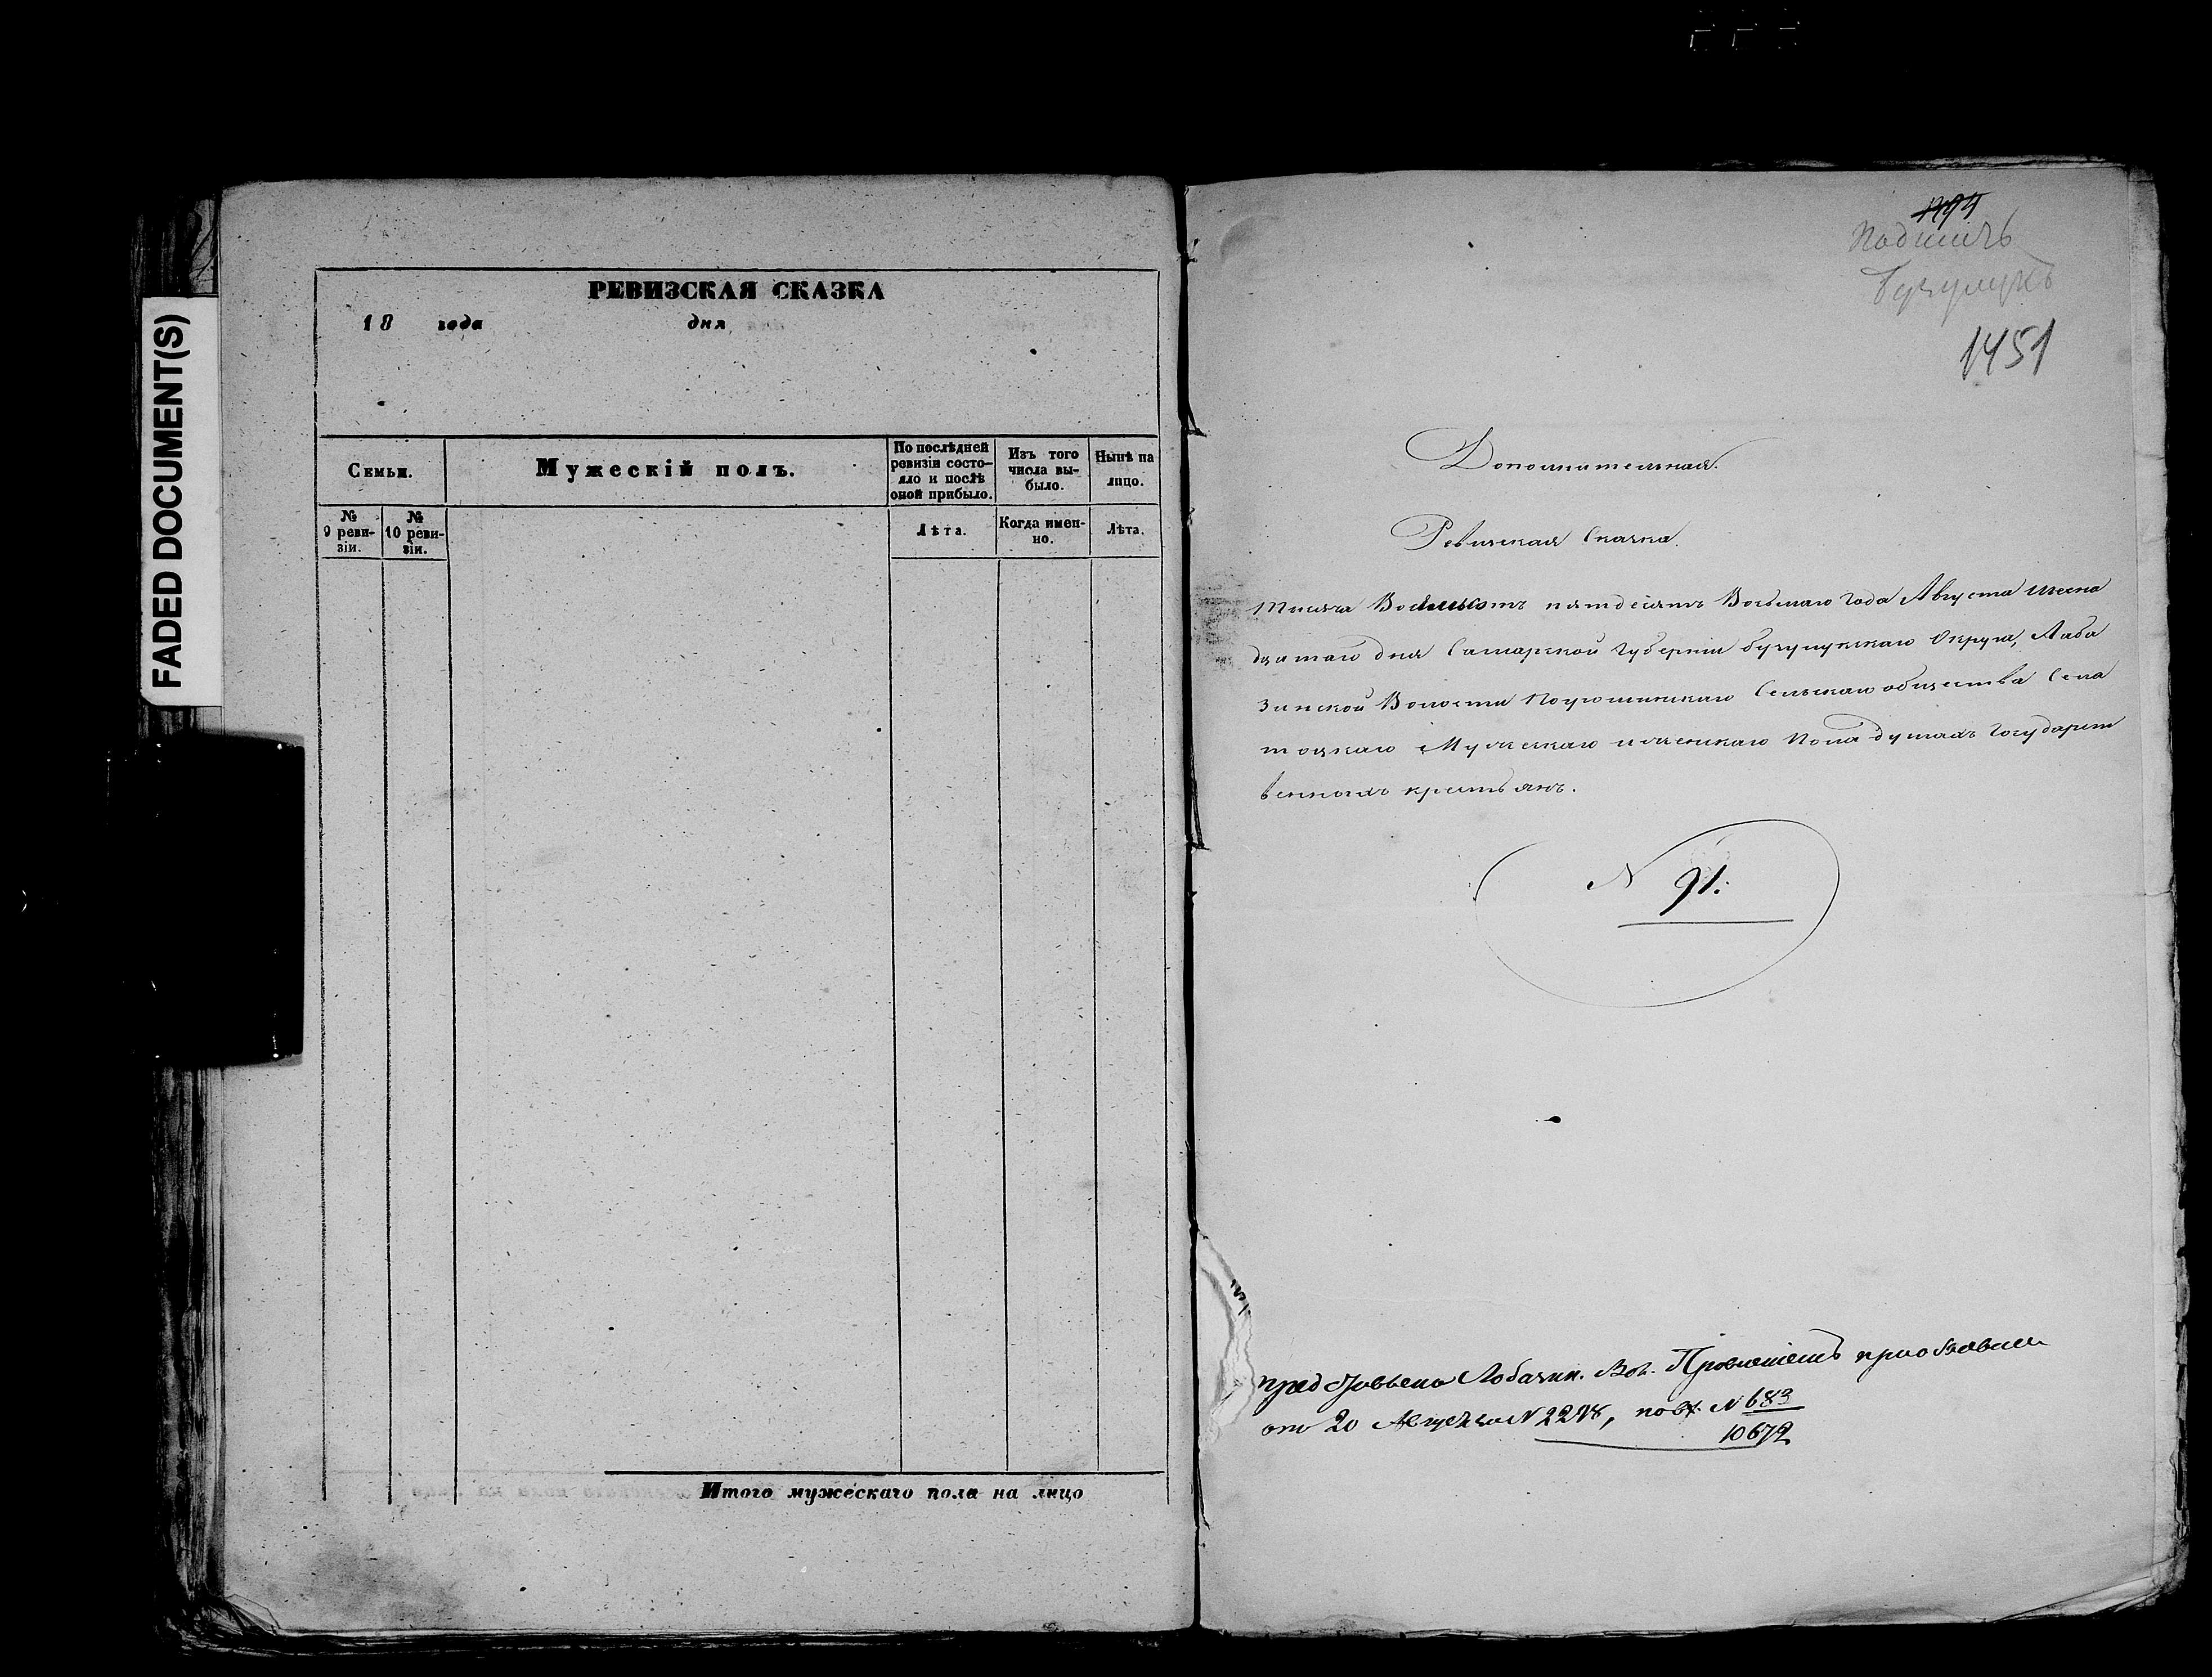 FADED DOCUMENT(S)
РЕВИЗСКАЯ СКАЗКА
18 года дня
Семьи.
Мужескій полъ.
По послѣдней ревизіи состо-
яло и послѣ оной прибыло.
Изъ того числа вы-
было.
Нынѣ на лицо.
№ 9 реви-
зіи.
№ 10 реви-
зіи.
Лѣта.
Когда имен-
но.
Лѣта.
Итого мужескаго пола на лицо
Бузулукъ
1451
Дополнительная.
Ревизская Сказка.
Тысяча Восемьсотъ пятдесятъ Восьмаго Года Августа шесна
дцатаго дня Самарской Губерніи бузулукскаго Округа, Лаба
зинской Волости Сельскаго общества Села
тоцкаго Мужескаго и женскаго Пола душахъ Государст
венныхъ крестьянъ.
N 91.
представлена Лобазин. Вол. Правленіемъ при
от 20 Августа N 2278, по вх. N 683
10672